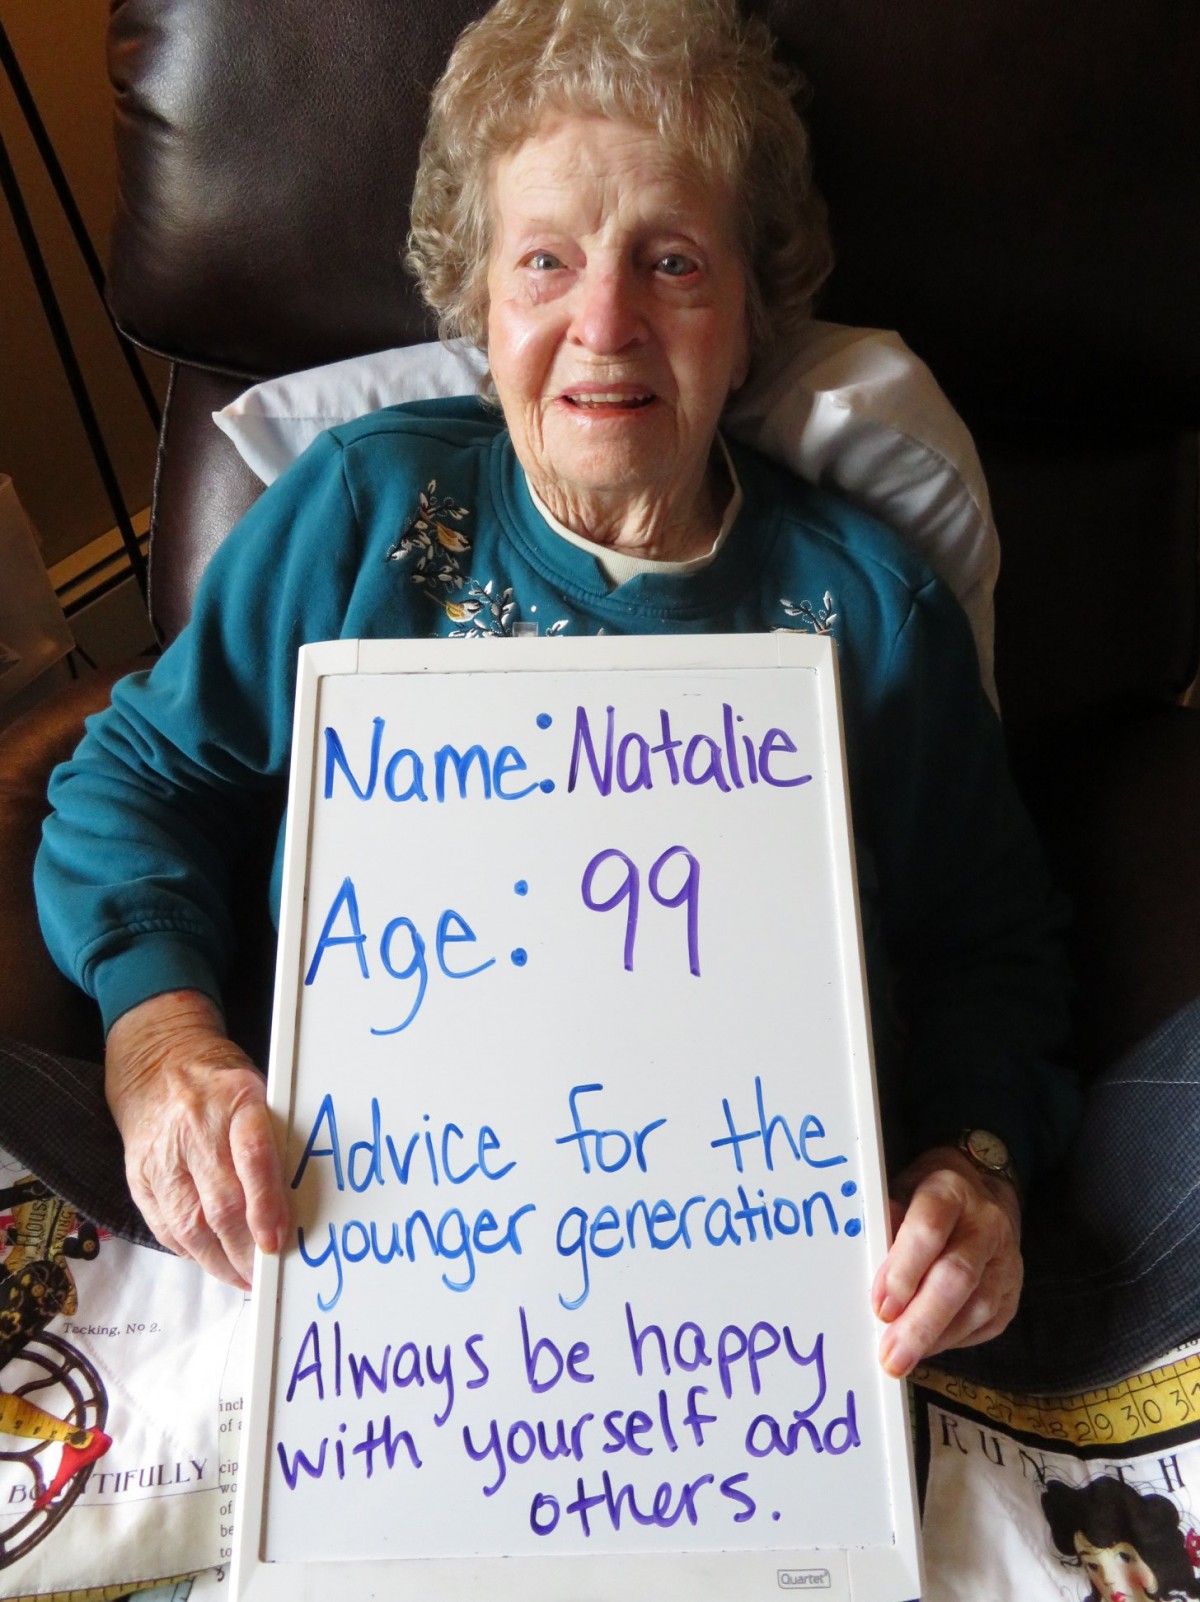 Name: Natalie
Age: 99
Advice for the
younger generation:
Always be happy
with yourself and
others.
Quartet
Tacking, No 2.
inch
of
TIFULLY
cip
wo
of
be
to
28 29 30
RUN TH